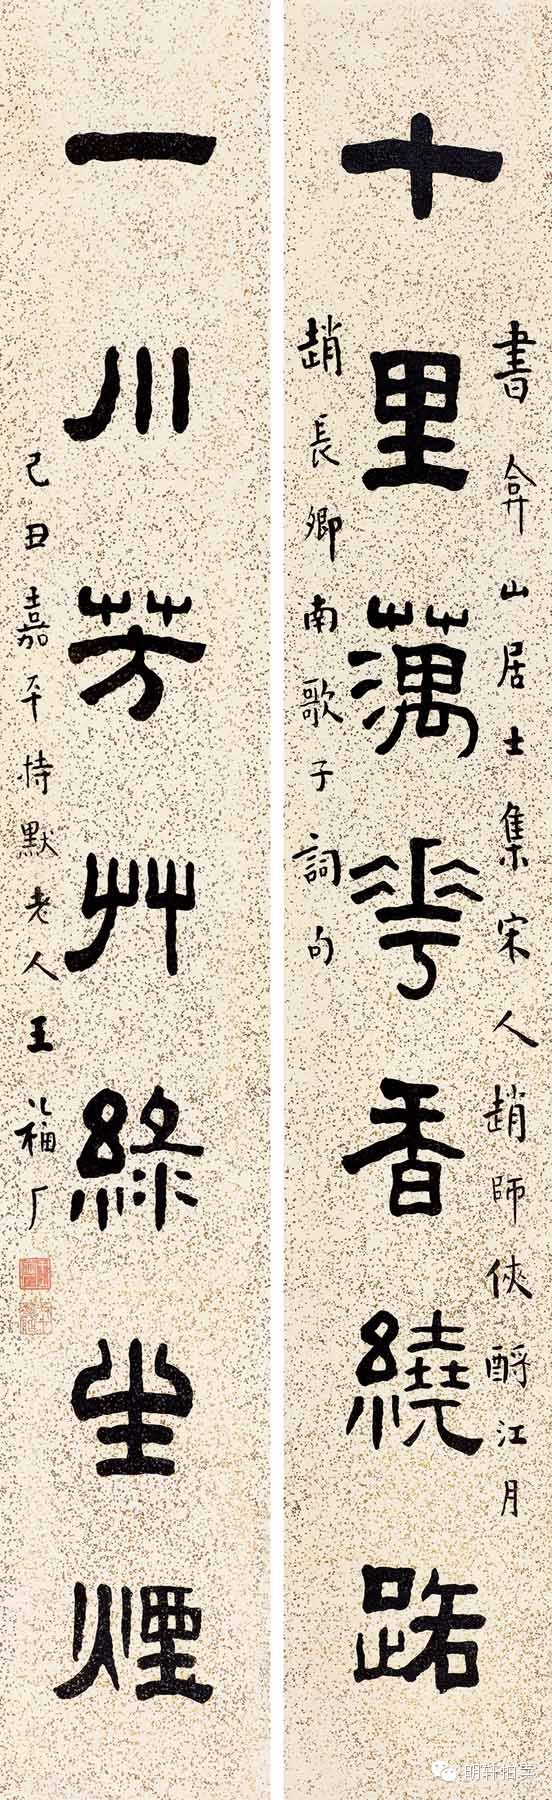 書弇山居士集宋人趙師俠酹江月
十里蕅華香繞路
趙長卿南歌子詞句
一川芳艸綠生煙
己丑嘉平持默老人王福厂
明轩拍卖